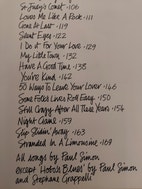 So Fancy's Comet · 106
Loves Me Like A Rock · 111
Gone At Last · 119
Silent Eyes · 122
I Do It For Your Love · 129
My Little Town · 132
Have A Good Time · 138
You're Kind · 142
50 Ways To Leave Your Lover · 146
Some Folks Lives Roll Easy · 150
Still Crazy After All These Years · 154
Night Game · 159
Slip Slidin' Away · 163
Stranded In A Limousine · 169
All songs by Paul Simon
except Hobo's Blues by Paul Simon
and Stephane Grappelli